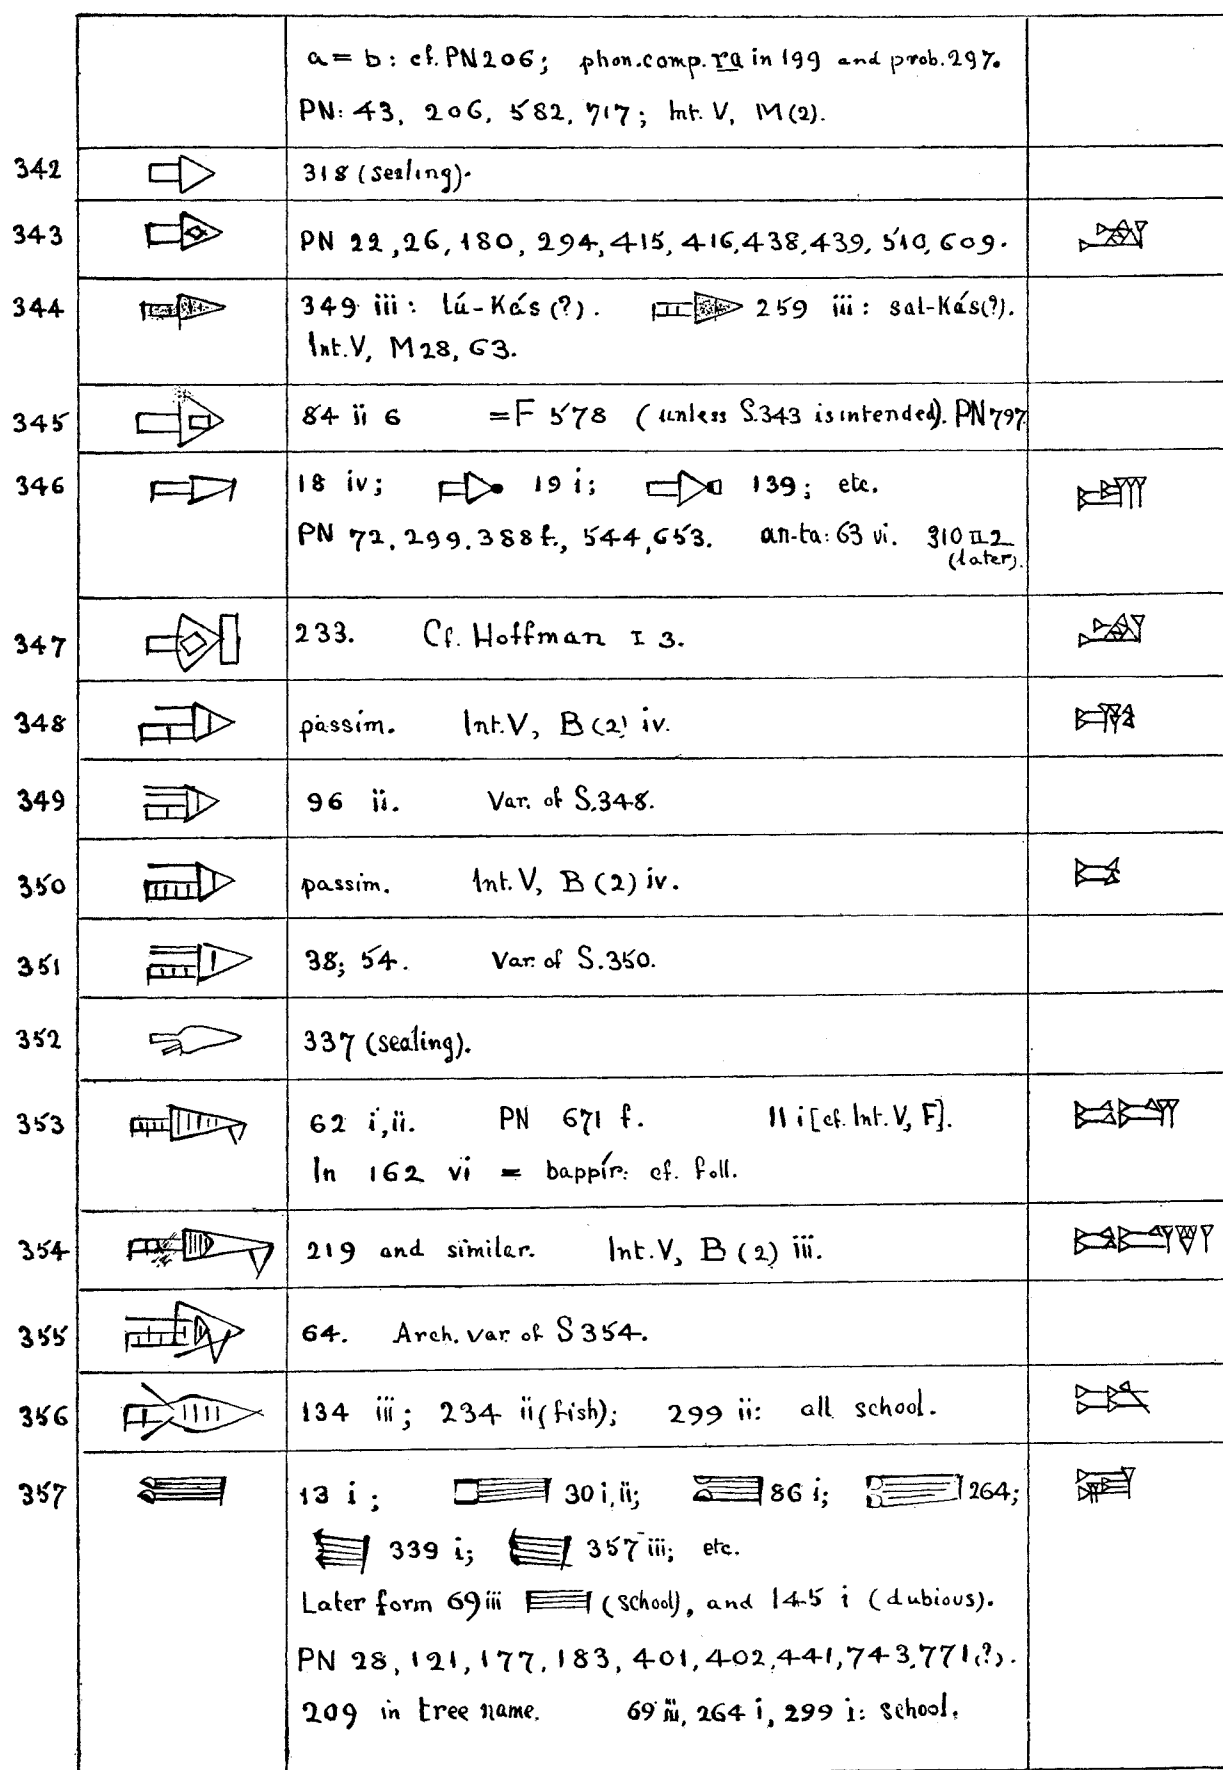 a = b: cf. PN 206; phon. comp. ra in 199 and prob. 297.
PN: 43, 206, 582, 717; Int. V, M (2).
342 318 (sealing).
343 PN 22, 26, 180, 294, 415, 416, 438, 439, 510, 609.
344 349 iii: lú-Kás (?). 259 iii: sal-Kás (?).
Int. V, M 28, 63.
345 84 ii 6 = F 578 (unless S. 343 is intended). PN 797
346 18 iv; 19 i; 139; etc.
PN 72, 299, 388 f., 544, 653. an-ta: 63 vi. 310 II 2
(later).
347 233. Cf. Hoffman I 3.
348 passim. Int. V, B (2) iv.
349 96 ii. Var. of S. 348.
350 passim. Int. V, B (2) iv.
351 38; 54. Var. of S. 350.
352 337 (sealing).
353 62 i, ii. PN 671 f. 11 i [cf. Int. V, F].
In 162 vi = bappír: cf. foll.
354 219 and similar. Int. V, B (2) iii.
355 64. Arch. var. of S 354.
356 134 iii; 234 ii (fish); 299 ii: all school.
357 13 i; 30 i, ii; 86 i; 264;
339 i; 357 iii; etc.
Later form 69 iii (school), and 145 i (dubious).
PN 28, 121, 177, 183, 401, 402, 441, 743, 771 (?).
209 in tree name. 69 iii, 264 i, 299 i: school.